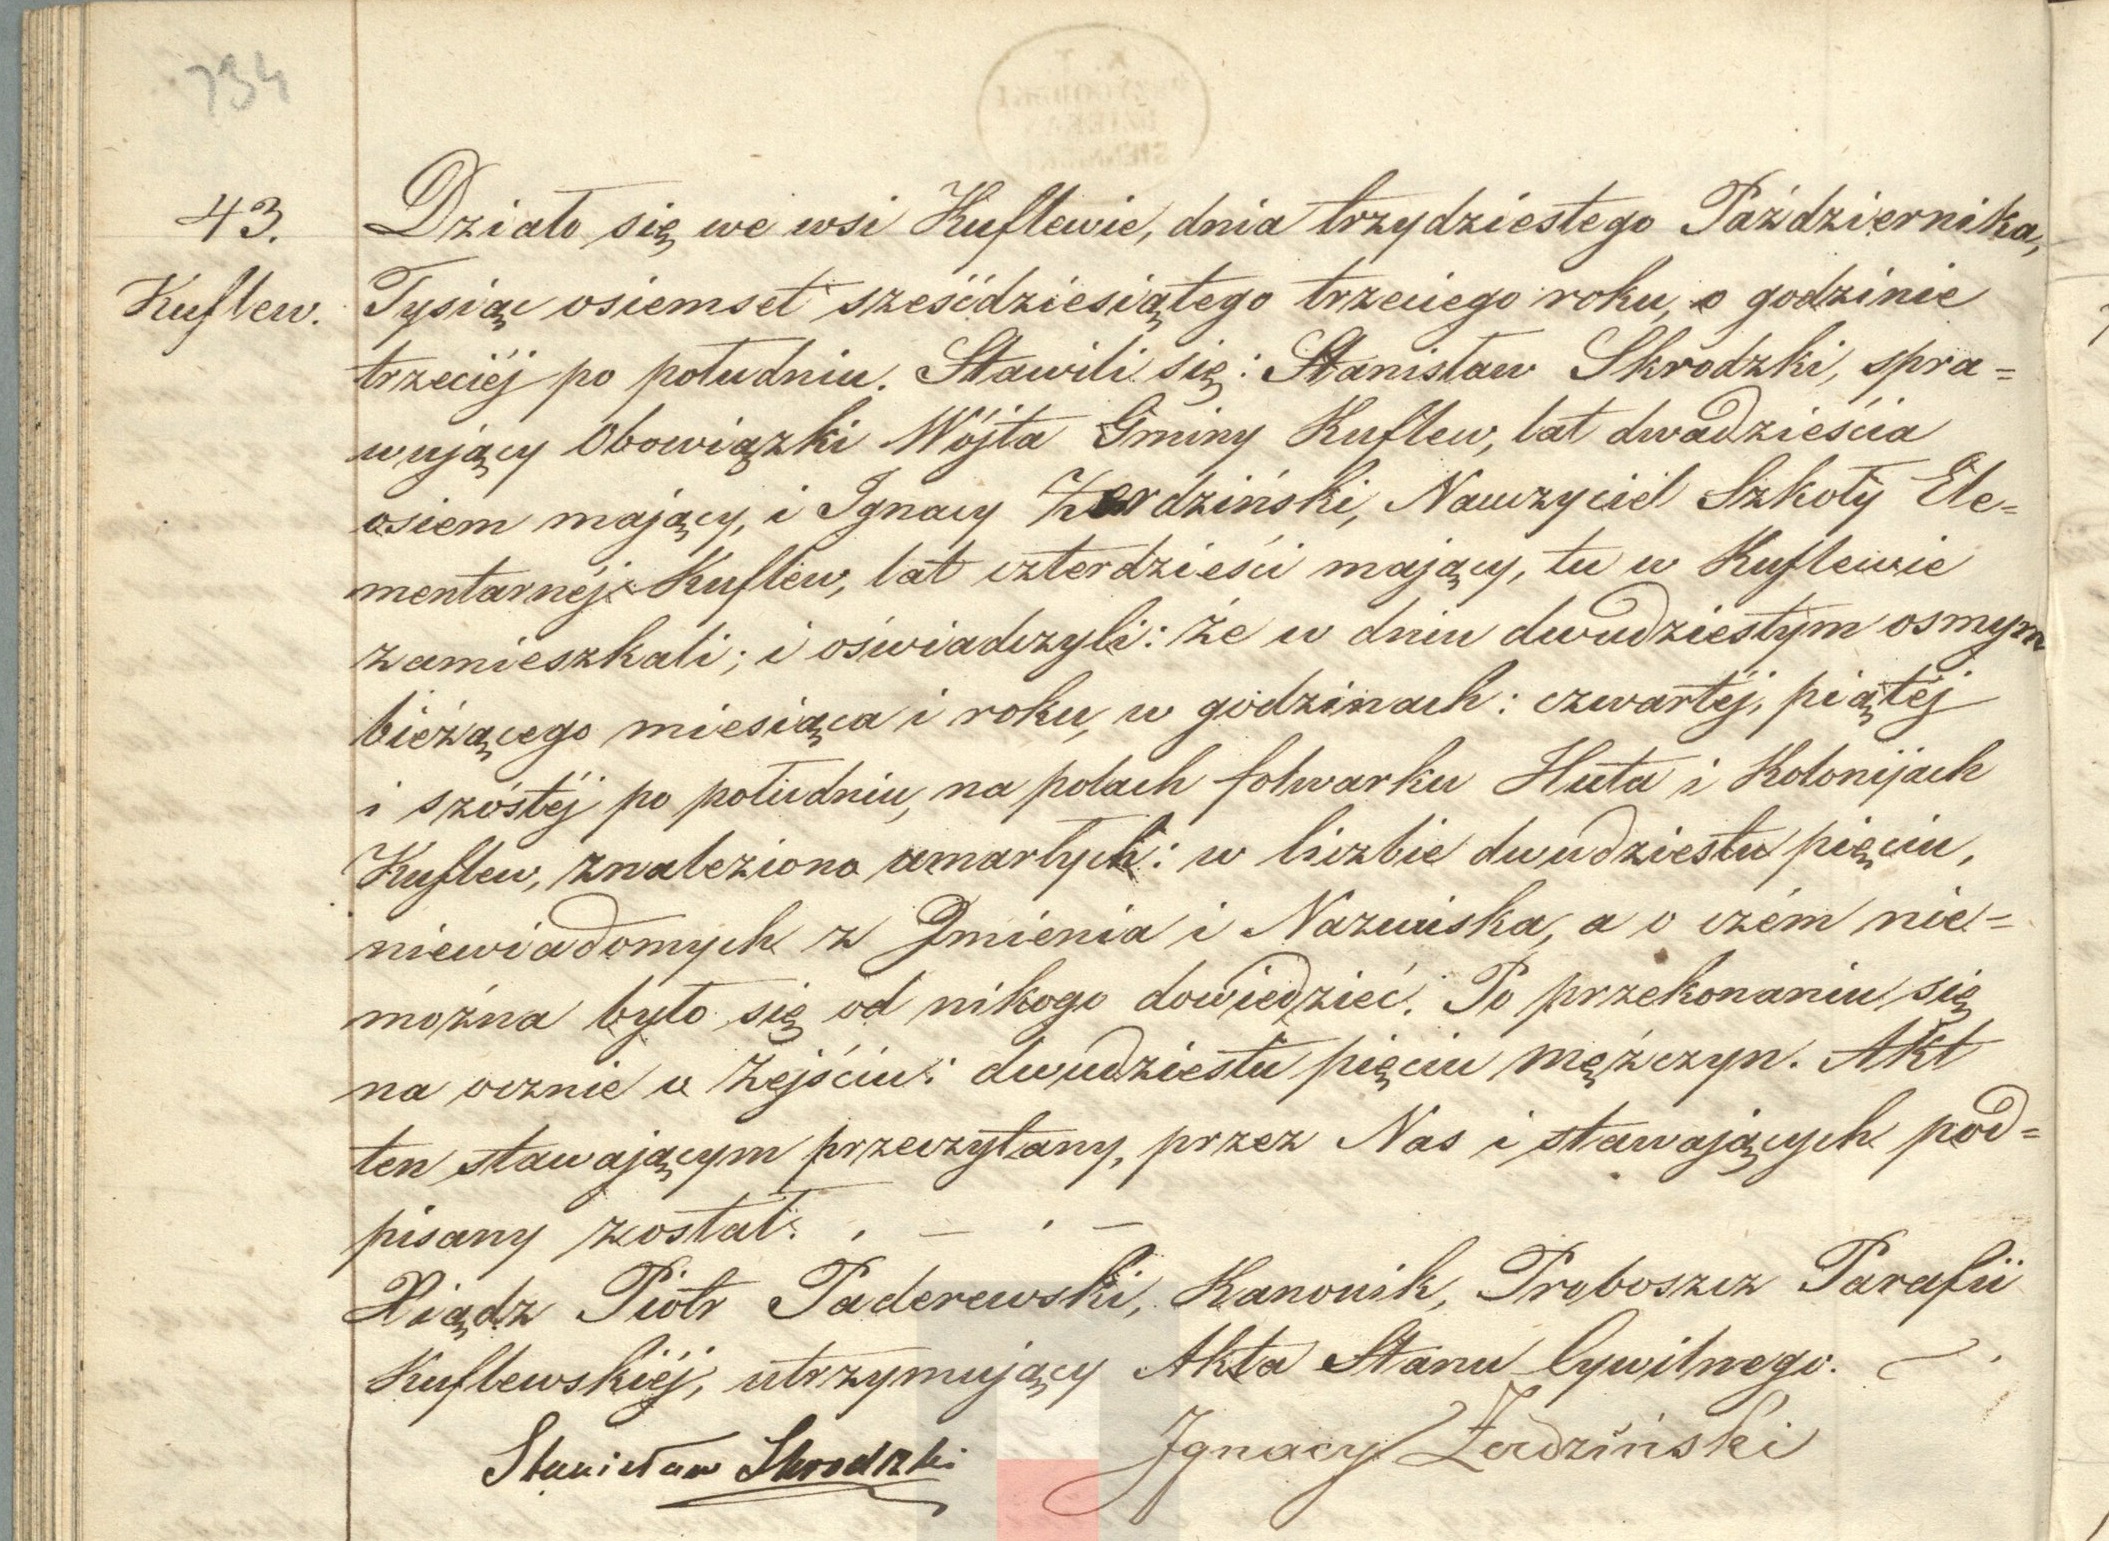 734
43.
Kuflew.
Działo się we wsi Kuflewie, dnia trzydziestego Października,
Tysiąc osiemset sześćdziesiątego trzeciego roku, o godzinie
trzeciéj po południu. Stawili się: Stanisław Skrodzki, spra=
wujący Obowiązki Wójta Gminy Kuflew, lat dwadzieścia
osiem mający, i Ignacy Żerdziński, Nauczyciel Szkoły Ele=
mentarnéj Kuflew, lat czterdzieści mający, tu w Kuflewie
zamieszkali; i oświadczyli: że w dniu dwudziestym osmym
bieżącego miesiąca i roku, w godzinach: czwartéj, piątéj
i szóstéj po południu, na polach folwarku Huta i Kolonijach
Kuflew, znaleziono umarłych: w liczbie dwudziestu pięciu,
niewiadomych z Imienia i Nazwiska, a o czém nie=
można było się od nikogo dowiedzieć. Po przekonaniu się
na ocznie o Zejściu: dwudziestu pięciu mężczyn. Akt
ten stawającym przeczytany, przez Nas i stawających pod=
pisany został.
Xiądz Piotr Paderewski, Kanonik, Proboszcz Parafii
Kuflewskiéj, utrzymujący Akta Stanu Cywilnego.
Stanisław Skrodzki
Ignacy Żerdziński